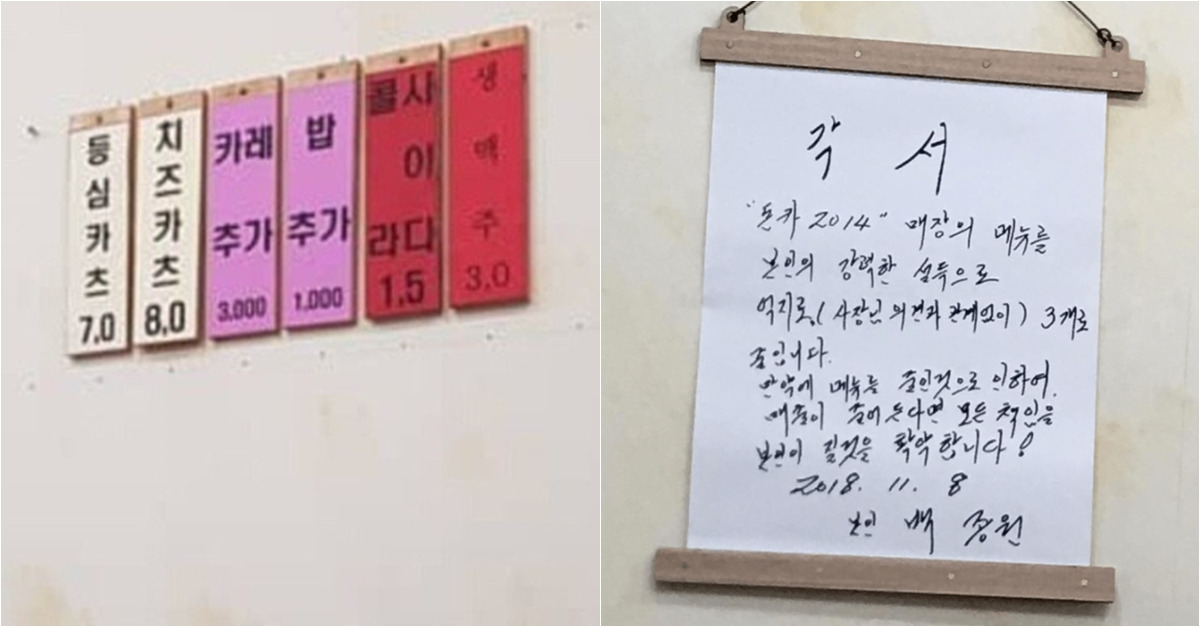 등심카츠 7.0
치즈카츠 8.0
카레 추가 3.000
밥 추가 1.000
콜라 사이다 1.5
생맥주 3.0
각 서
"돈카 2014" 매장의 메뉴를
본인의 강력한 설득으로
억지로,(사장님 의견과 관계없이) 3개로
줄입니다.
만약에 메뉴를 줄인것으로 인하여,
매출이 줄어든다면 모든 책임을
본인이 질것을 확약합니다!
2018. 11. 8
본인 백 종원